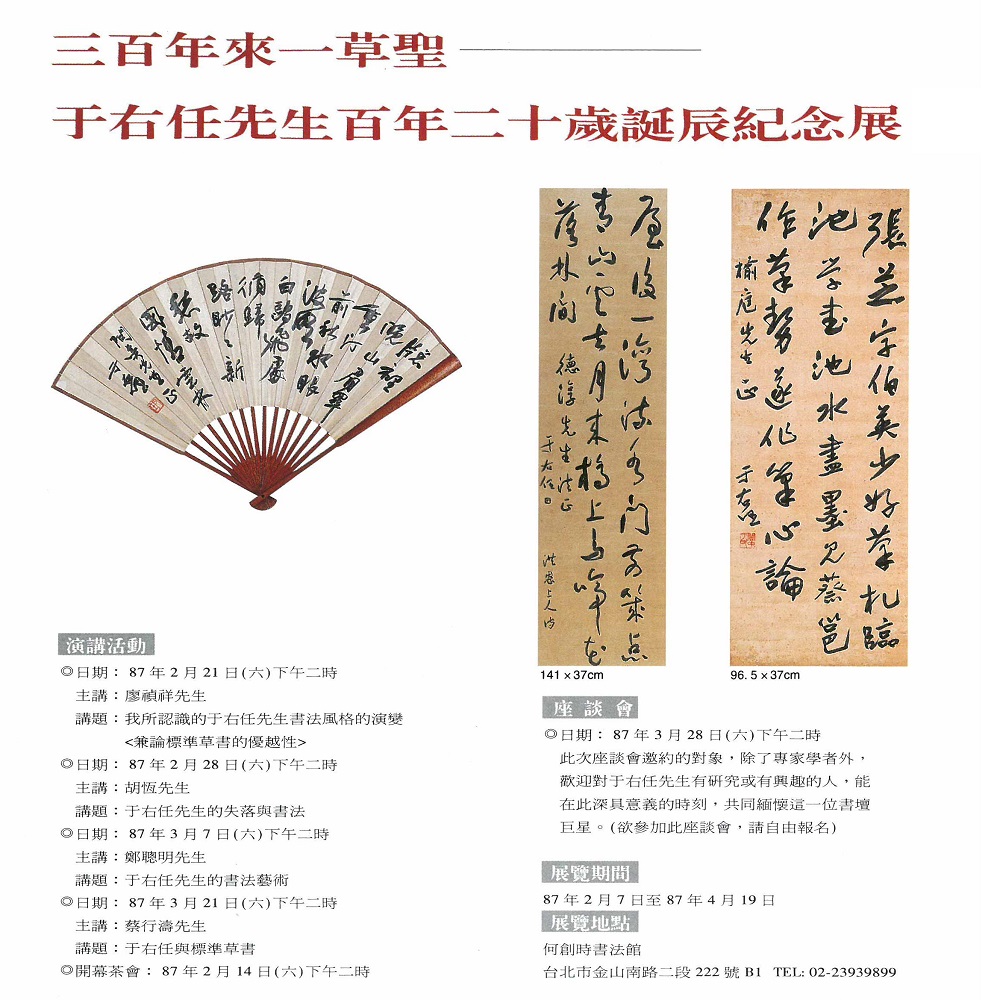 三百年來一草聖
于右任先生百年二十歲誕辰紀念展
屋後一灣流水門前幾點
青山雲去月來橋上鳥啼花
落林間
德淳先生法正
于右任
141 × 37cm
張芝字伯英少好草札臨
池學書池水盡墨見蔡邕
作筆勢遂作筆心論
榆庭先生正
于右任
96. 5 × 37cm
演講活動
◎日期： 87 年 2 月 21 日(六)下午二時
主講：廖禎祥先生
講題：我所認識的于右任先生書法風格的演變
<兼論標準草書的優越性>
◎日期： 87 年 2 月 28 日(六)下午二時
主講：胡恆先生
講題：于右任先生的失落與書法
◎日期： 87 年 3 月 7 日(六)下午二時
主講：鄭聰明先生
講題：于右任先生的書法藝術
◎日期： 87 年 3 月 21 日(六)下午二時
主講：蔡行濤先生
講題：于右任與標準草書
◎開幕茶會： 87 年 2 月 14 日(六)下午二時
座談會
◎日期： 87 年 3 月 28 日(六)下午二時
此次座談會邀約的對象，除了專家學者外，
歡迎對于右任先生有研究或有興趣的人，能
在此深具意義的時刻，共同緬懷這一位書壇
巨星。(欲參加此座談會，請自由報名)
展覽期間
87 年 2 月 7 日至 87 年 4 月 19 日
展覽地點
何創時書法館
台北市金山南路二段 222 號 B1 TEL: 02-23939899